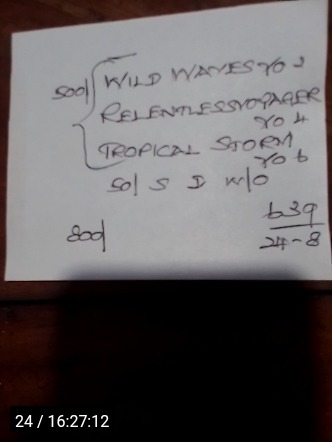 500/ WILD WAVES RO 2
RELENTLESSVOYAGER
RO 4
TROPICAL STORM
RO 6
50/ S D W/O
800/
639
24-8
24 / 16:27:12